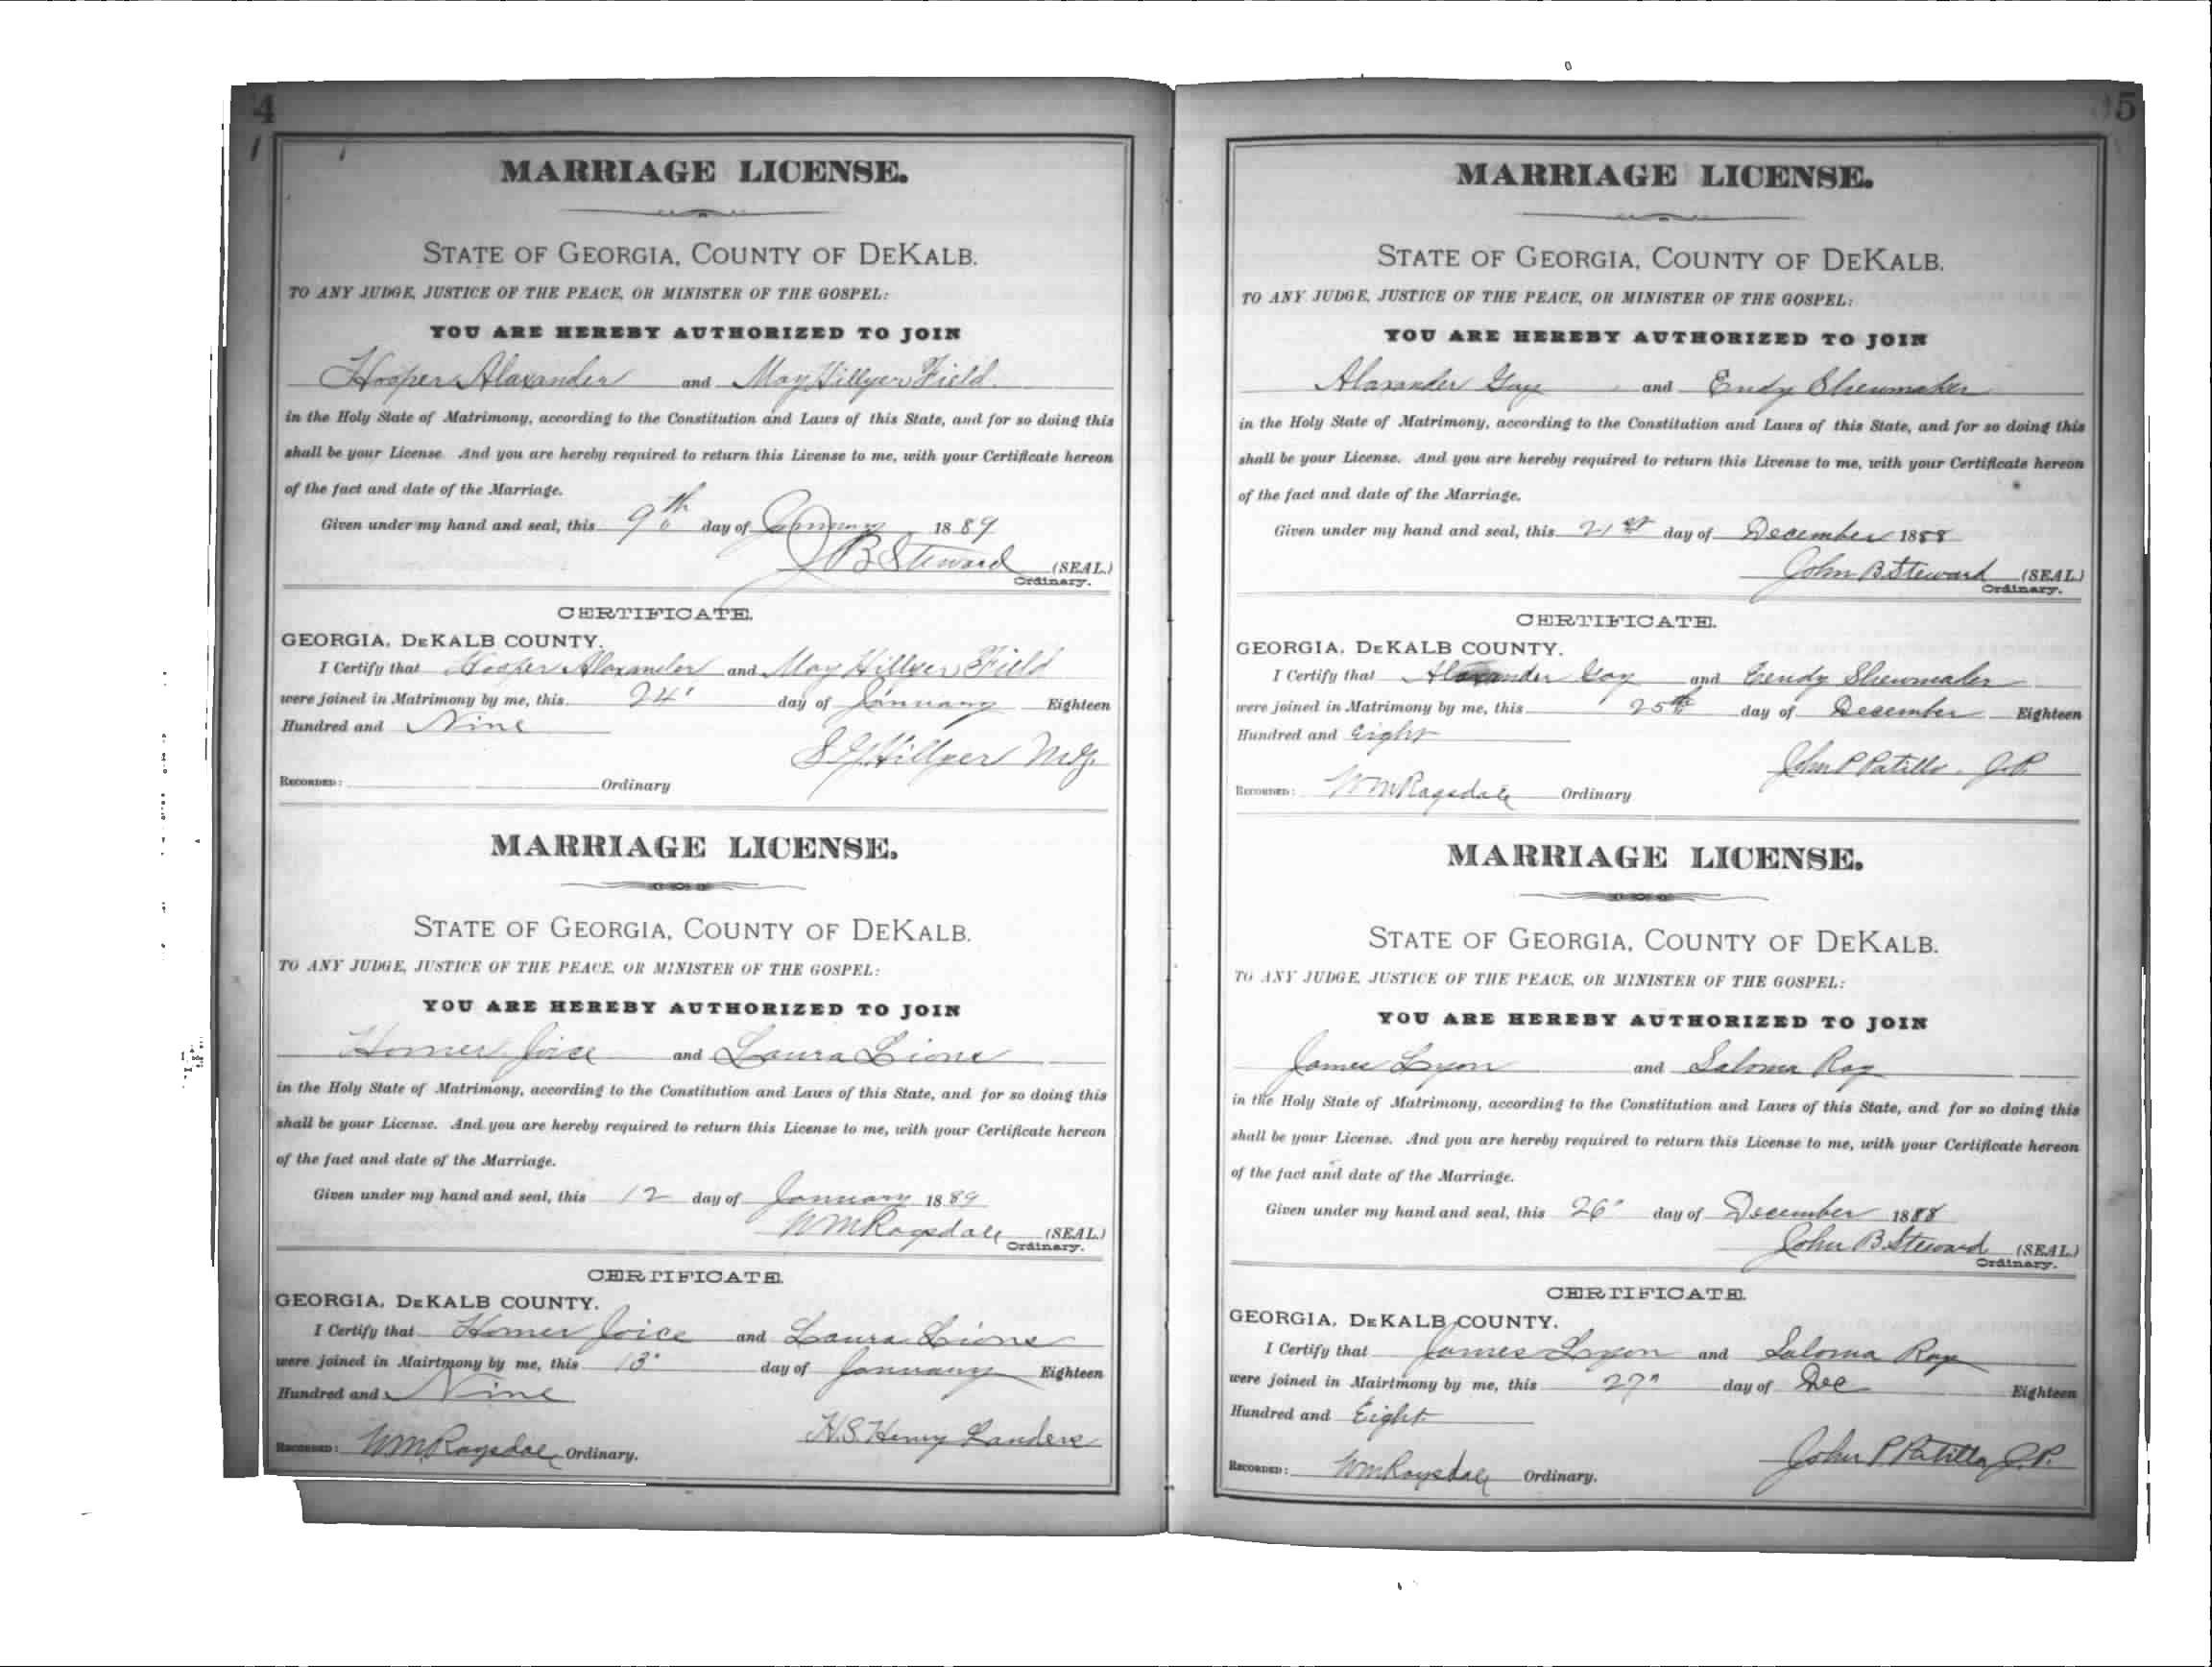 4
MARRIAGE LICENSE.
STATE OF GEORGIA, COUNTY OF DEKALB.
TO ANY JUDGE, JUSTICE OF THE PEACE, OR MINISTER OF THE GOSPEL:
YOU ARE HEREBY AUTHORIZED TO JOIN
Hooper Alaxander and May Hillyer Field
in the Holy State of Matrimony, according to the Constitution and Laws of this State, and for so doing this
shall be your License. And you are hereby required to return this License to me, with your Certificate hereon
of the fact and date of the Marriage.
Given under my hand and seal, this 9th day of January 1889
J B Steward (SEAL.)
Ordinary.
CERTIFICATE.
GEORGIA, DEKALB COUNTY.
I Certify that Hooper Alaxander and May Hillyer Field
were joined in Matrimony by me, this 24' day of January Eighteen
Hundred and Nine
S G Hillyer M.G.
RECORDED: Ordinary
MARRIAGE LICENSE.
STATE OF GEORGIA, COUNTY OF DEKALB.
TO ANY JUDGE, JUSTICE OF THE PEACE, OR MINISTER OF THE GOSPEL:
YOU ARE HEREBY AUTHORIZED TO JOIN
Homer Joice and Laura Lions
in the Holy State of Matrimony, according to the Constitution and Laws of this State, and for so doing this
shall be your License. And you are hereby required to return this License to me, with your Certificate hereon
of the fact and date of the Marriage.
Given under my hand and seal, this 12 day of January 1889
W M Ragsdale (SEAL.)
Ordinary.
CERTIFICATE.
GEORGIA, DEKALB COUNTY.
I Certify that Homer Joice and Laura Lions
were joined in Mairtmony by me, this 13" day of January Eighteen
Hundred and Nine
H.S. Henry Landers
RECORDED: W M Ragsdale Ordinary.
5
MARRIAGE LICENSE.
STATE OF GEORGIA, COUNTY OF DEKALB.
TO ANY JUDGE, JUSTICE OF THE PEACE, OR MINISTER OF THE GOSPEL:
YOU ARE HEREBY AUTHORIZED TO JOIN
Alaxander Gay and Endy Shewmaker
in the Holy State of Matrimony, according to the Constitution and Laws of this State, and for so doing this
shall be your License. And you are hereby required to return this License to me, with your Certificate hereon
of the fact and date of the Marriage.
Given under my hand and seal, this 21st day of December 1888
John B. Steward (SEAL.)
Ordinary.
CERTIFICATE.
GEORGIA, DEKALB COUNTY.
I Certify that Alaxander Gay and Shewmaker
were joined in Matrimony by me, this 25th day of December Eighteen
Hundred and Eight
John P Patillo J.P.
RECORDED: W M Ragsdale Ordinary
MARRIAGE LICENSE.
STATE OF GEORGIA, COUNTY OF DEKALB.
TO ANY JUDGE, JUSTICE OF THE PEACE, OR MINISTER OF THE GOSPEL:
YOU ARE HEREBY AUTHORIZED TO JOIN
James Lyon and Saloma Ray
in the Holy State of Matrimony, according to the Constitution and Laws of this State, and for so doing this
shall be your License. And you are hereby required to return this License to me, with your Certificate hereon
of the fact and date of the Marriage.
Given under my hand and seal, this 26" day of December 1888
John B. Steward (SEAL.)
Ordinary.
CERTIFICATE.
GEORGIA, DEKALB COUNTY.
I Certify that James Lyon and Saloma Ray
were joined in Mairtmony by me, this 27" day of Dec Eighteen
Hundred and Eight
John P Patillo J.P.
RECORDED: W M Ragsdale Ordinary.